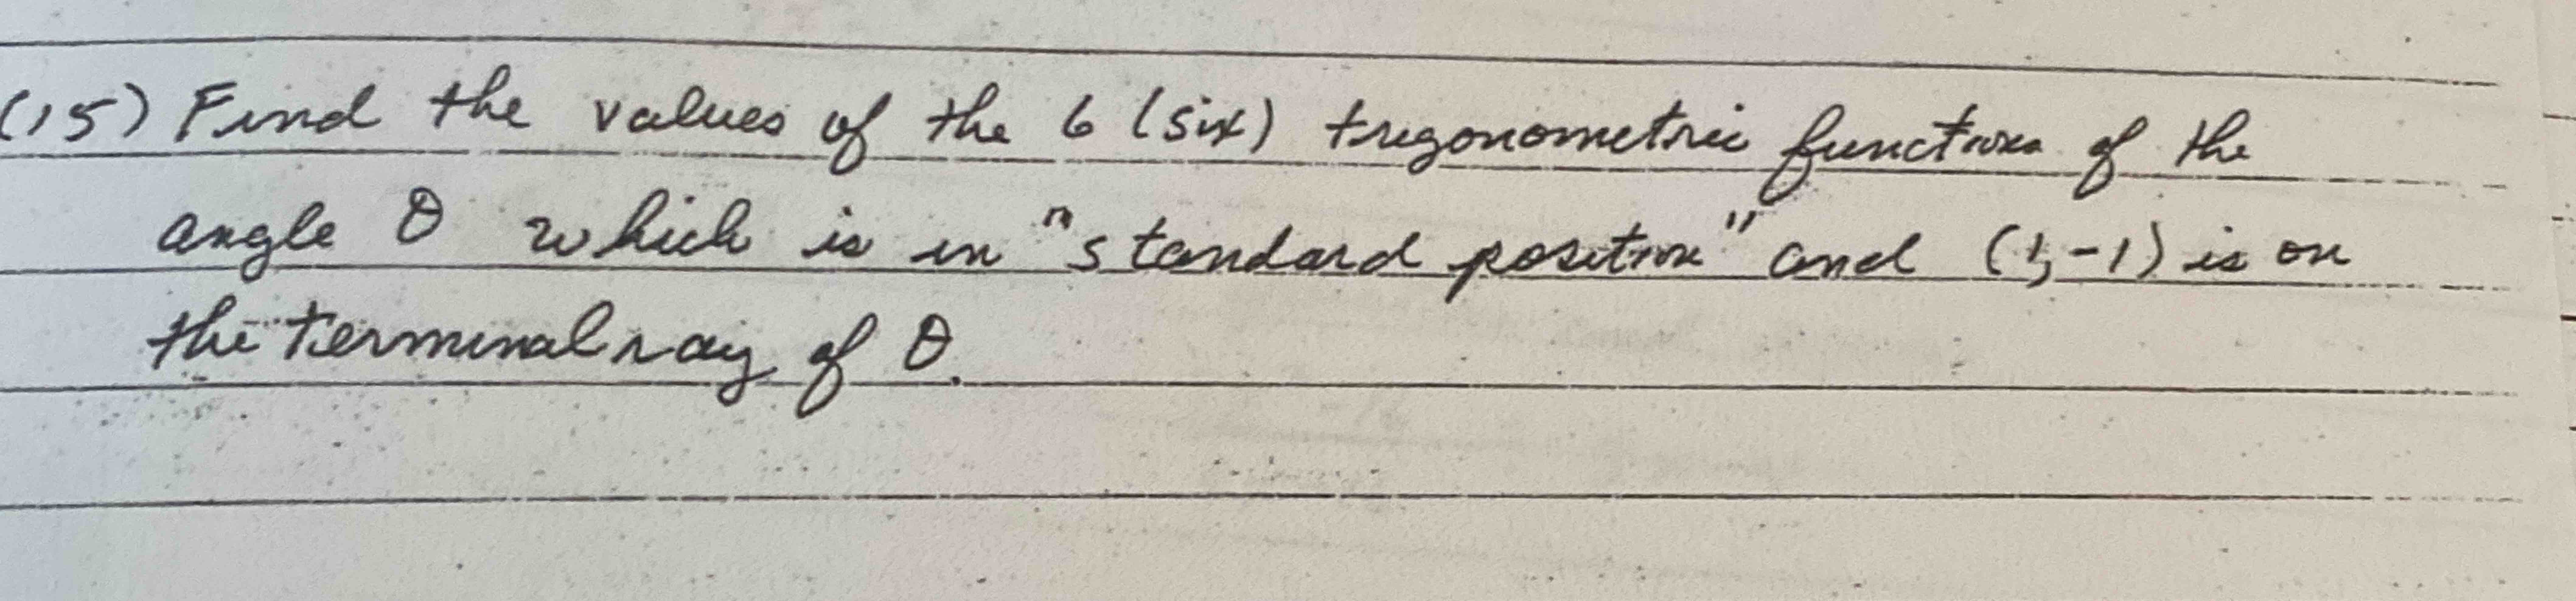 (15) Find the values of the 6 (six) trigonometric functions of the
angle θ which is in "standard position" and (1,-1) is on
the terminal ray of θ.